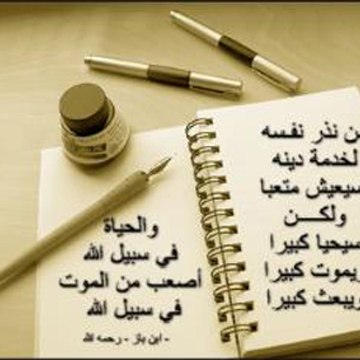 من نذر نفسه
لخدمة دينه
سيعيش متعبا
ولكـــن
سيحيا كبيرا
ويموت كبيرا
ويبعث كبيرا
والحياة
في سبيل الله
أصعب من الموت
في سبيل الله
- ابن باز - رحمه الله